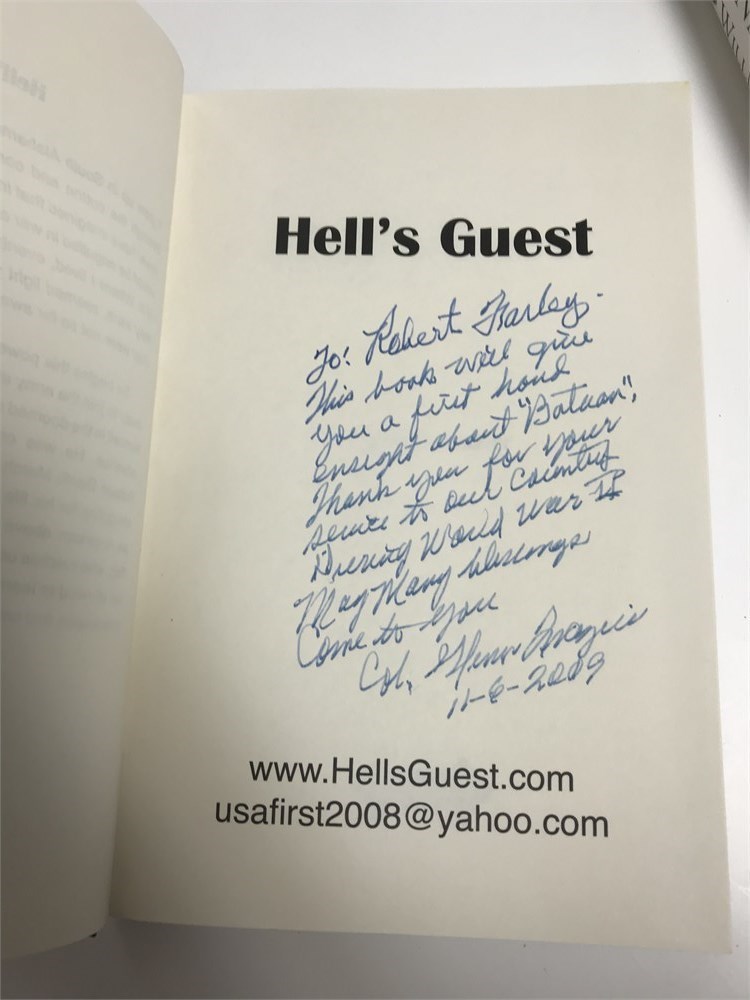 Hell's Guest
To: Robert Farley.
This books will give
you a first hand
ensight about "Bataan".
Thank you for your
service to our Country
During World War II
May Many blessings
Come to you
Col. Glenn Frazier
11-6-2009
www.HellsGuest.com
usafirst2008@yahoo.com